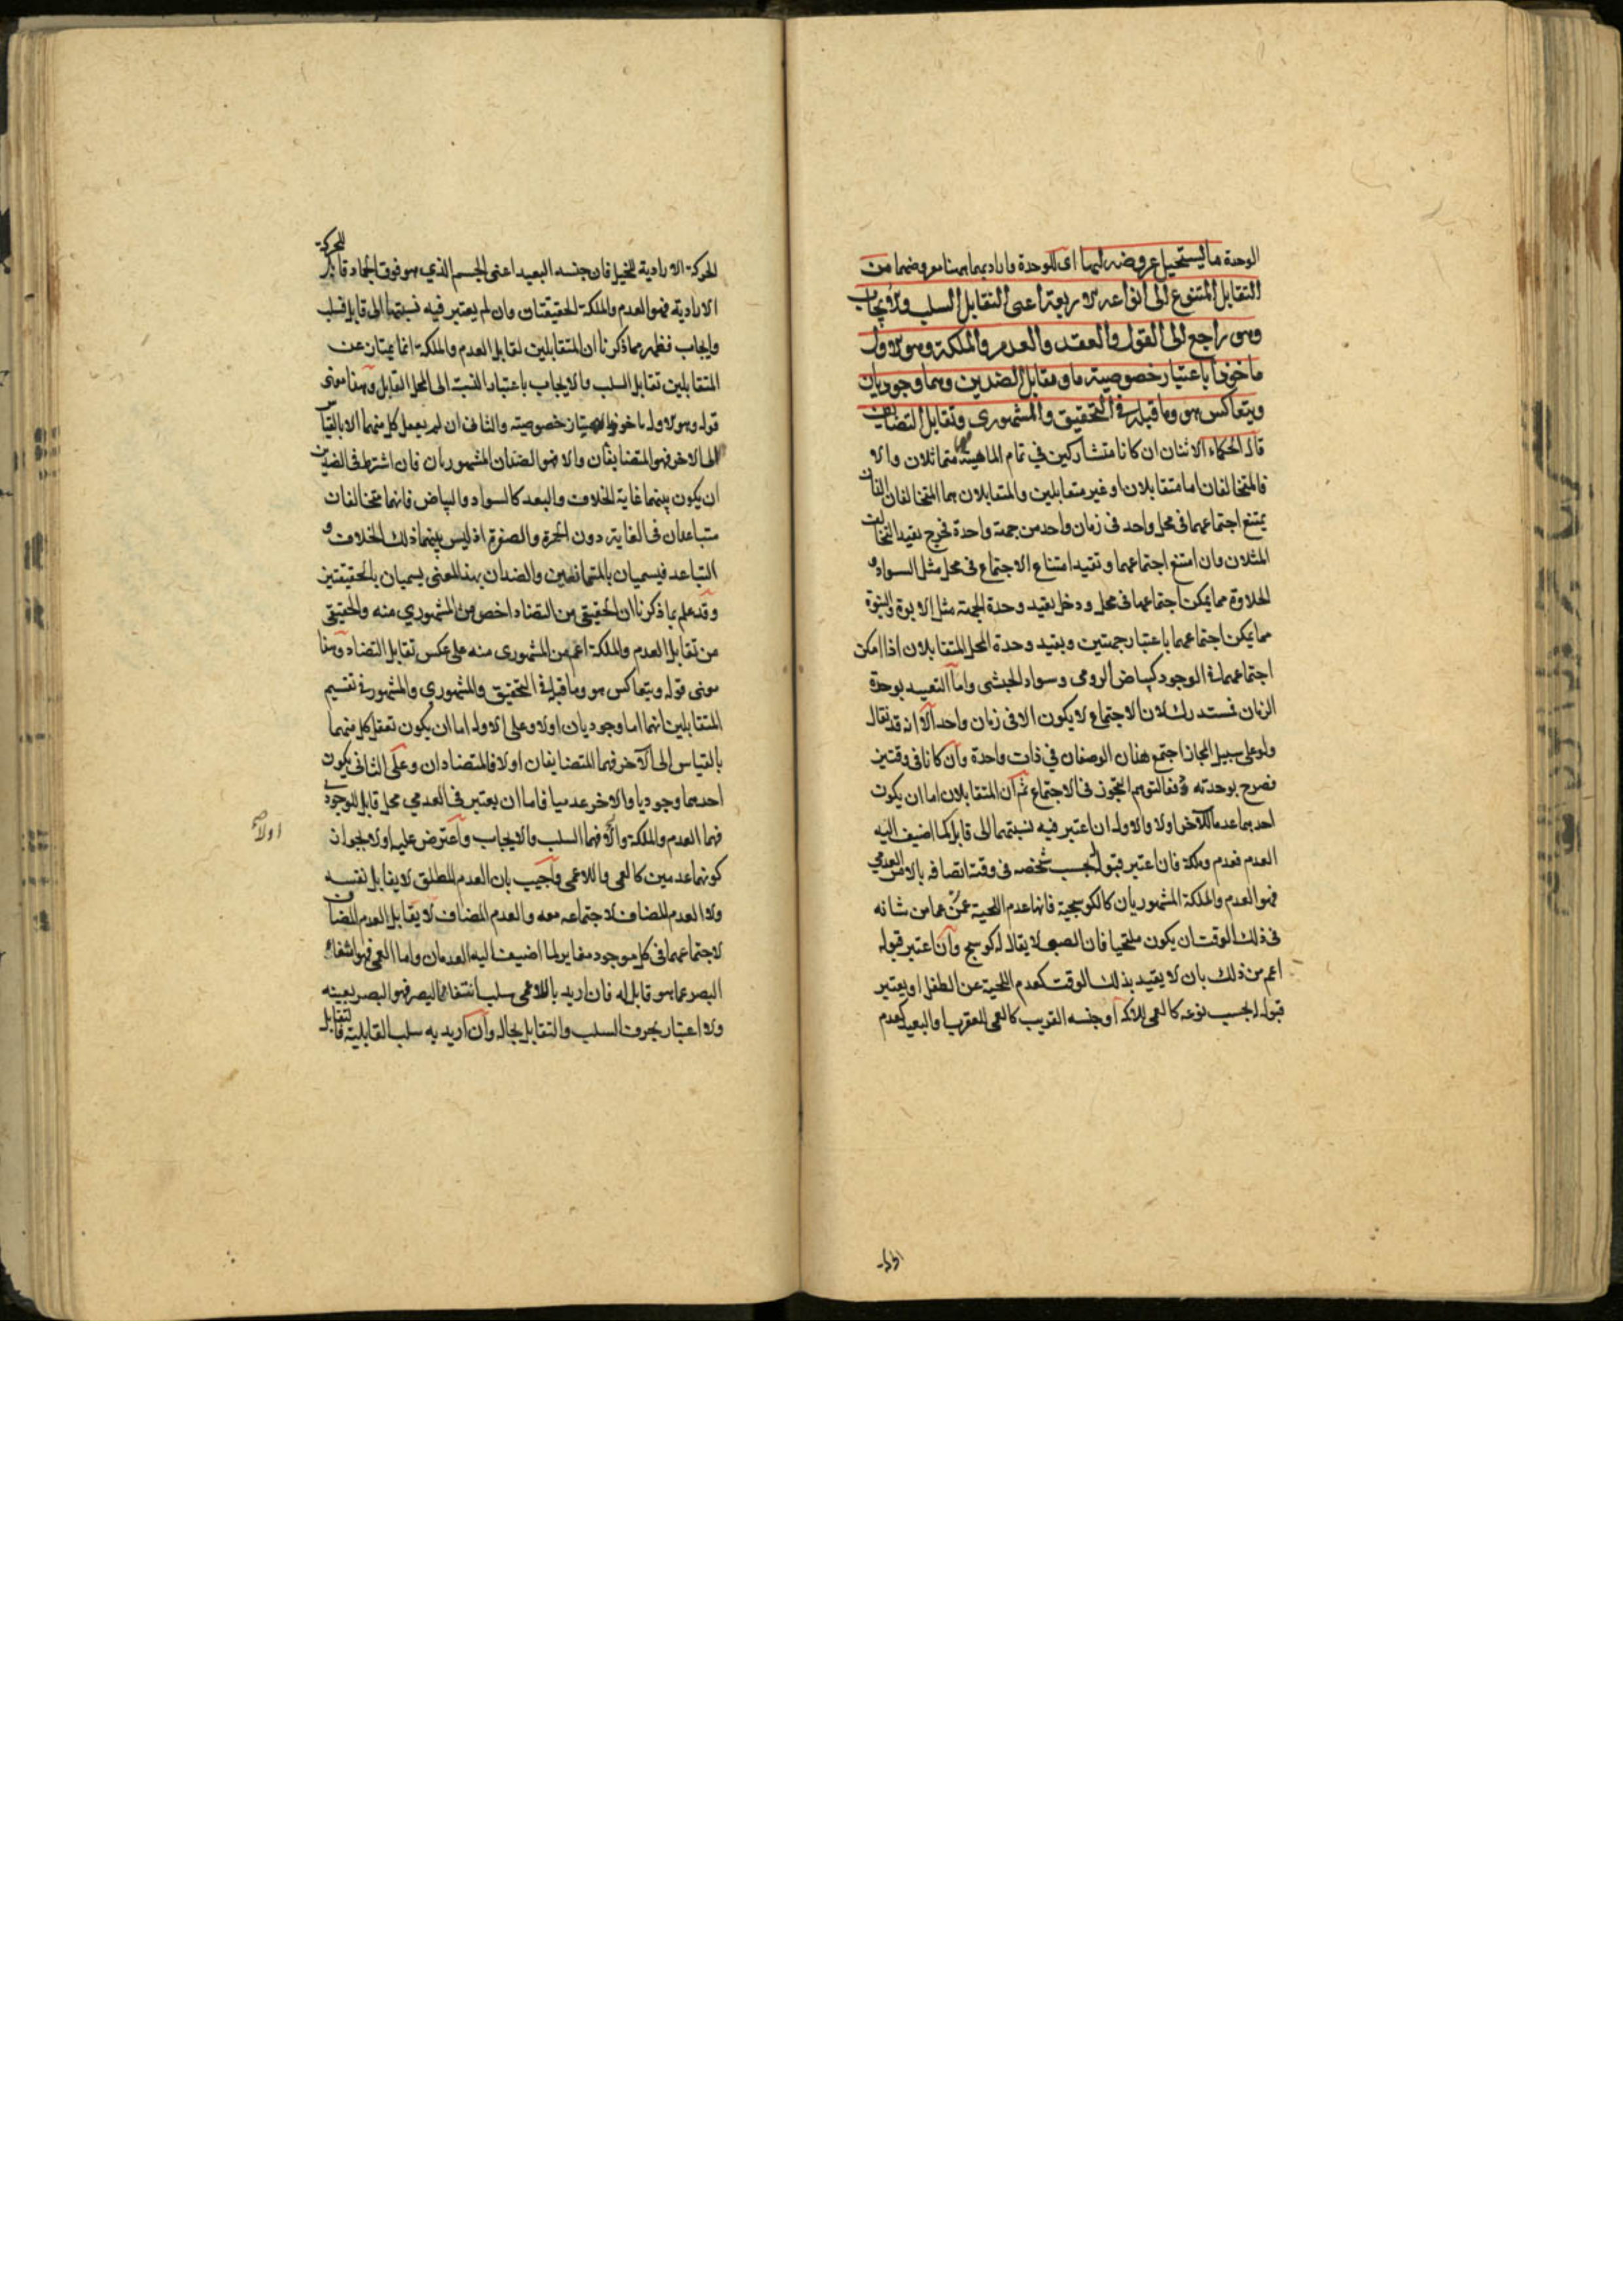 الوحدة ما يستحيل عروضه لها اى للوحدة وما داد بهما ههنا معروضهما من
التقابل المتنوع الى انواعه الاربعة اعنى التقابل السلب والايجاب
وهو راجع الى القول والعقد والعدم والملكة وهو الاول
ماخوذا باعتبار خصوصية ما وتقابل الضدين وهما وجوديان
ويتعاكس هو وما قبله فى التحقيق والمشهورى وتقابل التضايف
قال الحكماء الاثنان ان كانا متشاركين في تمام الماهية فهما متماثلان والا
فالمتخالفان اما متقابلان او غير متقابلين والمتقابلان هما المتخالفان اللذان
يمتنع اجتماعهما فى محل واحد فى زمان واحد من جهة واحدة فخرج بقيد التخالف
المثلان وان امتنع اجتماعهما وبقيد امتناع الاجتماع فى محل مثل السواد و
الحلاوة مما يمكن اجتماعهما فى محل ودخل بقيد وحدة الجهة مثل الابوة والبنوة
مما يمكن اجتماعهما باعتبار جهتين وبقيد وحدة المحل المتقابلان اذا امكن
اجتماعهما فى الوجود كبياض الرومى وسواد الحبشى واما التقييد بوحدة
الزمان فمستدرك لان الاجتماع لا يكون الا فى زمان واحد الا انه قد يقال
ولو على سبيل المجاز اجتمع هذان الوصفان في ذات واحدة وان كانا فى وقتين
فصرح بوحدته دفعا لتوهم التجوز فى الاجتماع ثم ان المتقابلان اما ان يكون
احدهما عدما للآخر اولا والاول ان اعتبر فيه نسبتهما الى قابل لما اضيف اليه
العدم فعدم وملكة فان اعتبر قبوله بحسب شخصه فى وقت اتصافه بالامر العدمي
فهو العدم والملكة المشهوريان كالكوسجية فانها عدم اللحية عمن عما من شانه
فى ذلك الوقت ان يكون ملتحيا فان الصبى لا يقال له كوسج وان اعتبر قبوله
اعم من ذلك بان لا يقيد بذلك الوقت كعدم اللحية عن الطفل او يعتبر
قبوله بحسب نوعه كالعمى للاكمه او جنسه القريب كالعمى للعقرب او البعيد كعدم
الحركة الارادية للجبل فان جنسه البعيد اعنى الجسم الذي هو فوق الجماد قابل للحركة
الارادية فهو العدم والملكة الحقيقتان وان لم يعتبر فيه نسبتهما الى قابل فسلب
وايجاب فظهر مما ذكرنا ان المتقابلين تقابل العدم والملكة انما يمتازان عن
المتقابلين تقابل السلب والايجاب باعتبار النسبة الى المحل القابل وهذا معنى
قوله وهو الاول ماخوذا باعتبار خصوصية والثانى ان لم يعقل كل منهما الا بالقياس
الى الاخر فهو المتضايفان والا فهو الضدان المشهوريان فان اشترط فى الضدين
ان يكون بينهما غاية الخلاف والبعد كالسواد والبياض فانهما متخالفان
متباعدان فى الغاية دون الحمرة والصفرة اذ ليس بينهما ذلك الخلاف و
التباعد فيسميان بالمتعاندين والضدان بهذا المعنى يسميان بالحقيقيين
وقد علم بما ذكرنا ان الحقيقى من التضاد اخص من المشهوري منه والحقيقى
من تقابل العدم والملكة اعم من المشهورى منه على عكس تقابل التضاد وهذا
معنى قوله ويتعاكس هو وما قبله فى التحقيق والمشهوري والمشهور فى تقسيم
المتقابلين انهما اما وجوديان اولا وعلى الاول اما ان يكون تعقل كل منهما
بالقياس الى الآخر فهما المتضايفان اولا فالمتضادان وعلى الثانى يكون
احدهما وجوديا والاخر عدميا فاما ان يعتبر فى العدمي محل قابل للوجودي
فهما العدم والملكة والا فهما السلب والايجاب واعترض عليه اولا بجواز
كونهما عدمين كالعمى واللاعمى واجيب بان العدم المطلق لا يقابل نفسه
ولا العدم المضاف لاجتماعه معه والعدم المضاف لا يقابل العدم المضاف
لاجتماعهما فى كل موجود مغاير لما اضيف اليه العدمان واما العمى فهو انتفاء
البصر عما هو قابل له فان اريد باللاعمى سلب انتفاء البصر فهو البصر بعينه
ولا اعتبار بحرف السلب والتقابل بحاله وان اريد به سلب القابلية فالتقابل
اولا صح